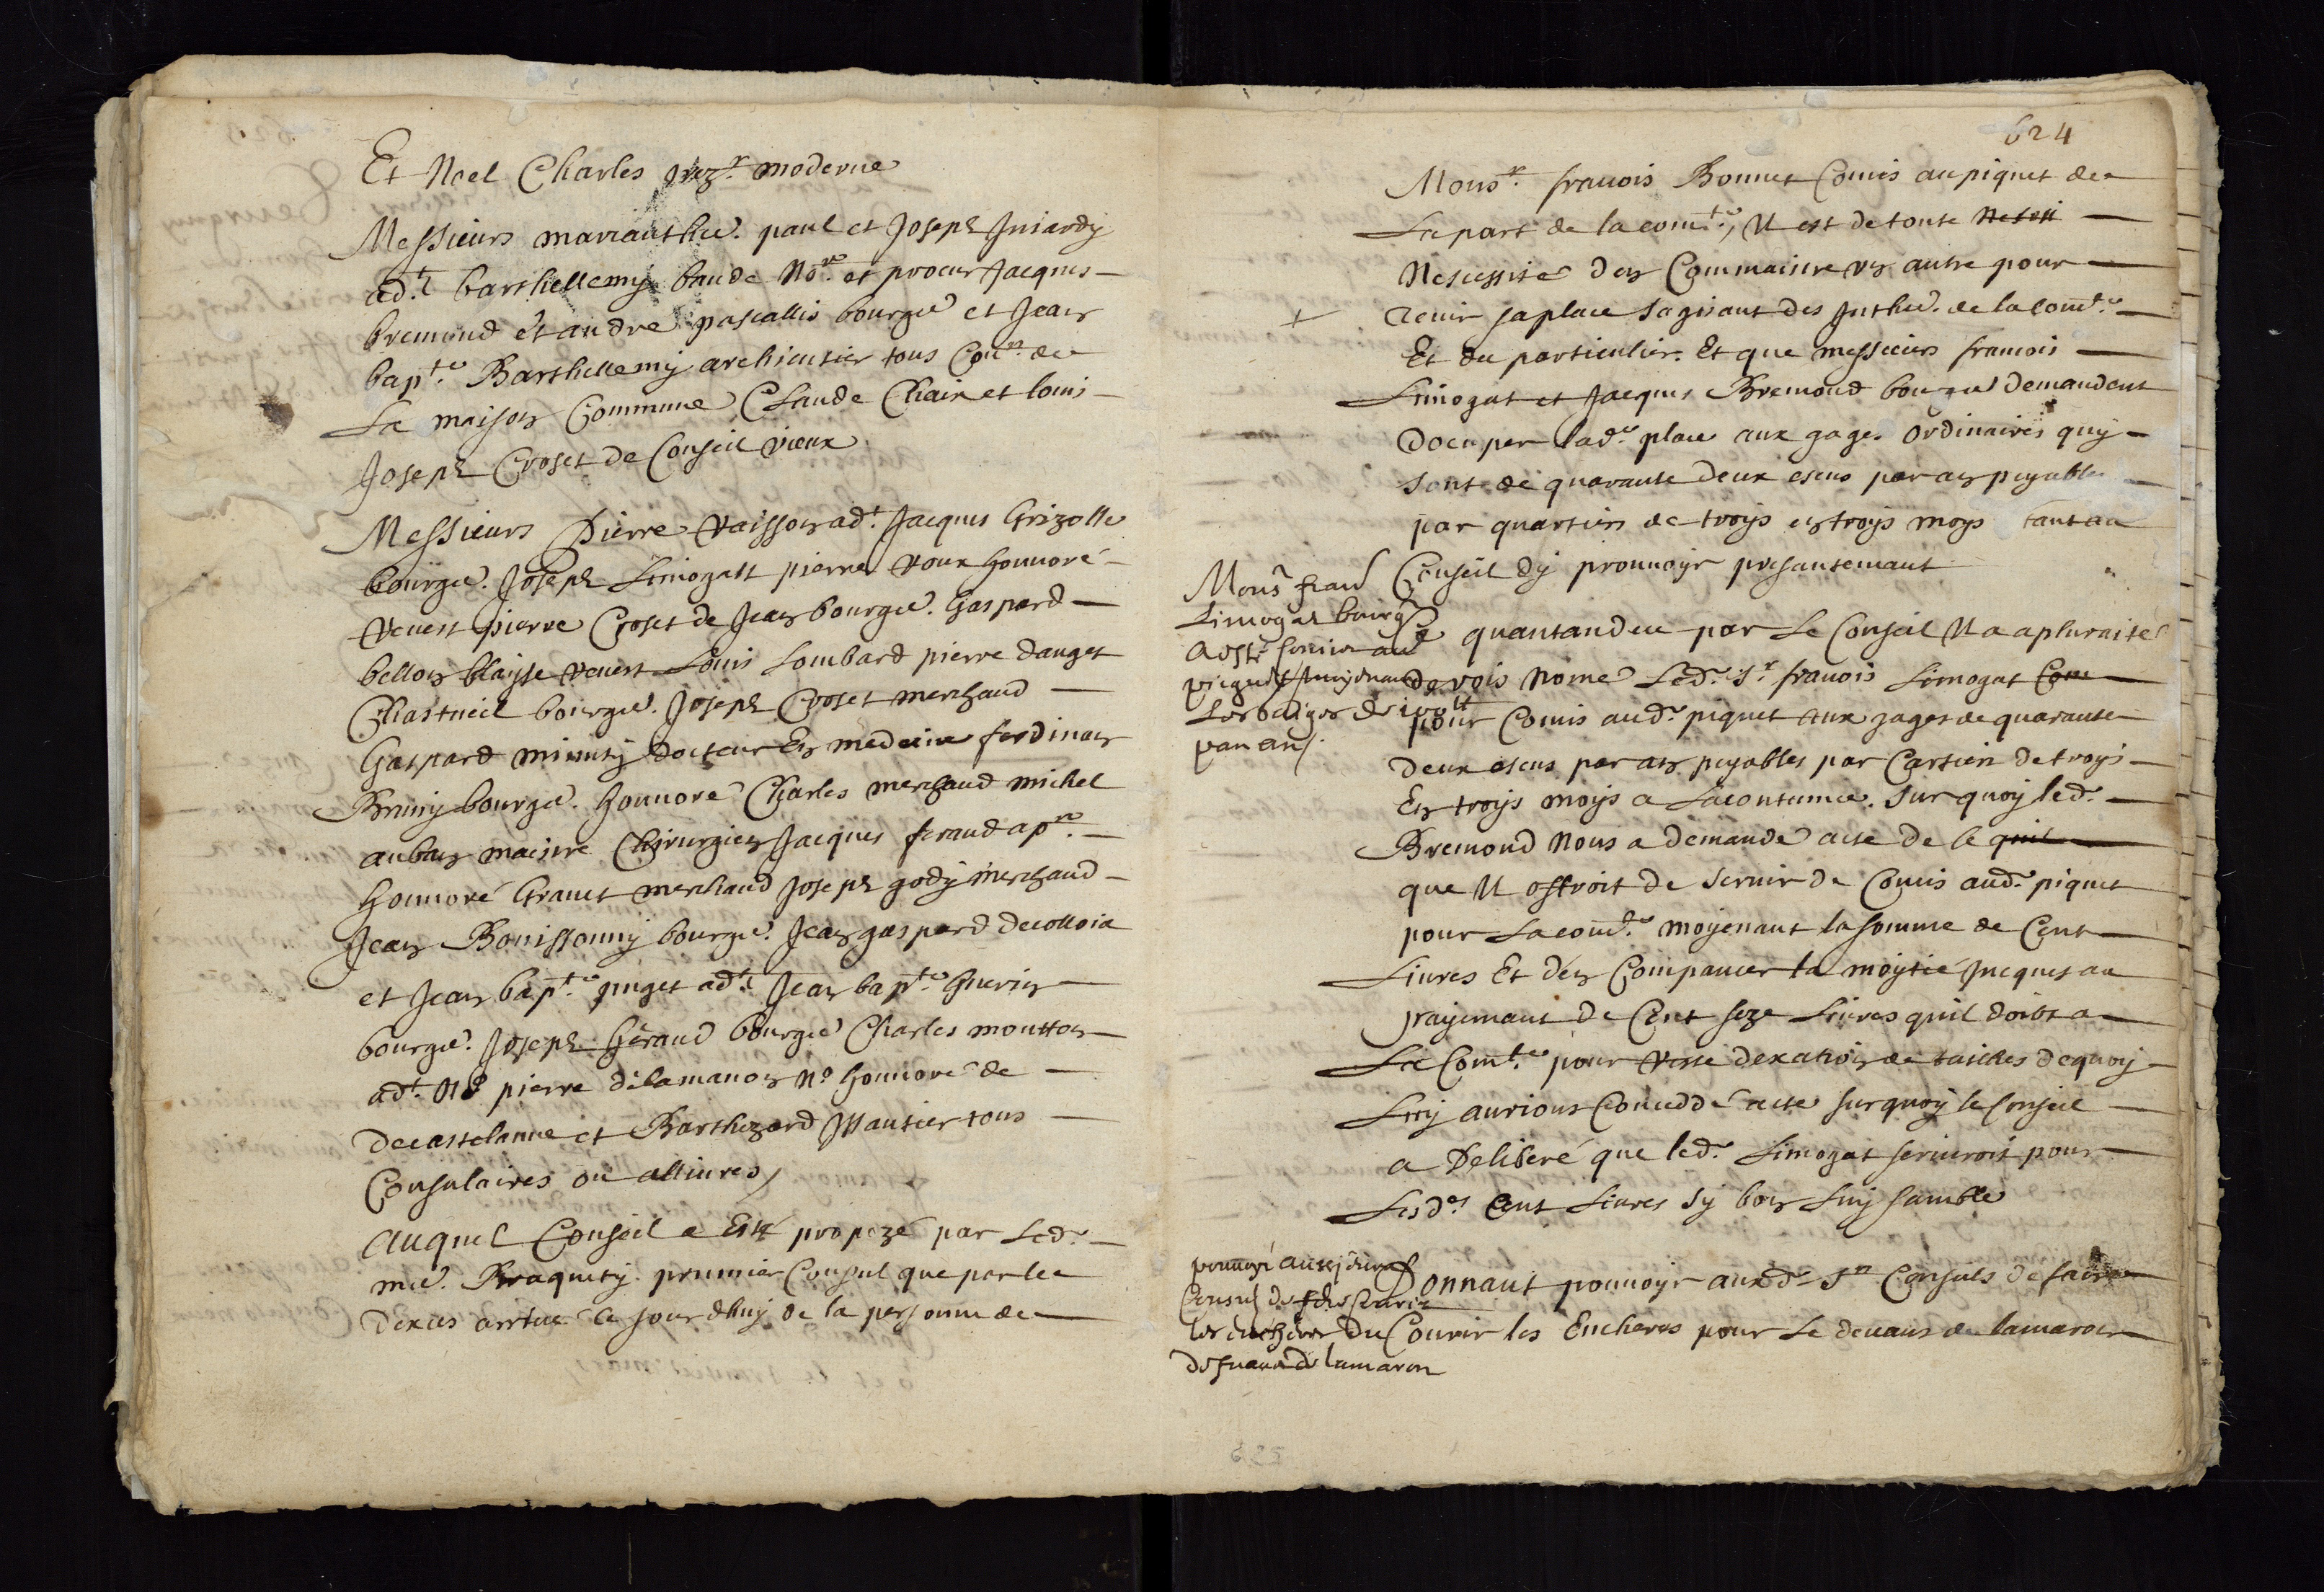 Et Noel Charles trezr. moderne
Messieurs mariauthie. paul et Joseph Juiardy
adt. barthellemy baude Nore. et procur Jacques
bremond et andre pascallis bourge et Jean
bapte. Barthellemy archieutier tous Conrs. de
La maison Commune Claude Chaix et louis
Joseph Croset de Conseil vieux
Messieurs Pierre Vaisson adt. Jacques Grizolle
bourge. Joseph Limogatt pierre Roux honnoré
Venert pierre Croset de Jean bourge. Gaspard
bellon blayse venert Louis Lombard pierre dauget
Chastueil bourge. Joseph Croset merchand
Gaspard minuty docteur En medecine ferdinan
Bruny bourge. honnoré Charles merchand michel
auban maistre Chirurgien Jacques feraud apre.
honnoré Granet merchand Joseph gody merchand
Jean Bonissonny bourge. Jean gaspard decolloia
et Jean bapte. puget adt. Jean bapte. Guerin
bourge. Joseph Geraud bourge Charles moutton
adt. Me pierre delamanon No honnoré de
decastelanne et Barthezard Mautier tous
Consulaires ou allivres,
Auquel Conseil a Esté propozé par Ledt.
me. Braquety. prumier Consul que par le
dexces arrivé ce jourdhuy de la personne de
624
Monsr. francois Bonnet Comis au piquet de
La part de la comte, Il est de toute Nesessi
Nesessité den Commaistre un autre pour
tenir sa place sagisant des Inthe. de la Comte.
Et du particulier. Et que messieurs francois
Limogat et Jacques Bremond bourge demandent
docuper lade. place aux gages ordinaires quy
sont de quarante deux escus par an payables
par quartiers de troys en troys moys tant au
Conseil dy prouvoyr presantemant
Ce quantandeu par Le Conseil Il a a pluraité
de vois Nomé Ledt. Sr. francois Limogat Com
pour Comis audt. piquet aux gages de quarante
deux escus par an payables par Cartiers de troys
En troys moys a Lacoutumée. Sur quoy ledt.
Bremond Nous a demandé acte de ce quil
que Il offroit de servir de Comis audt. piquet
pour Lacomte. moyenant la somme de Cent
Livres Et den Compancer la moytié Jucques au
payemant de Cent seze Livres quil doibt a
La Comte. pour reste dexation de tailles dequoy
Luy aurions Concedé acte sur quoy le Conseil
a Deliberé que ledt. Limogat serviroit pour
Lesds. Cent Livres sy bon Luy samble
Donnant pouvoyr auxds. Srs Consuls de faire
Courir les Encheres pour Le devans de lamaron
Monsr fran
Limogat bourg
a esté
piquet moyenant
Les gaiges de 100 tt
par an.
pouvoyr aux srs
Consuls de fere Courir
les encheres du
de lamaron